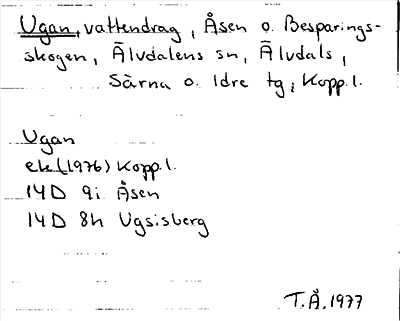 Ugan, vattendrag, Åsen o. Besparings-
skogen, Älvdalens sn, Älvdals,
Särna o. Idre tg, Kopp.l.
Ugan
ek (1976) Kopp.l.
14D 9i Åsen
14D 8h Ugsisberg
T.Å. 1977